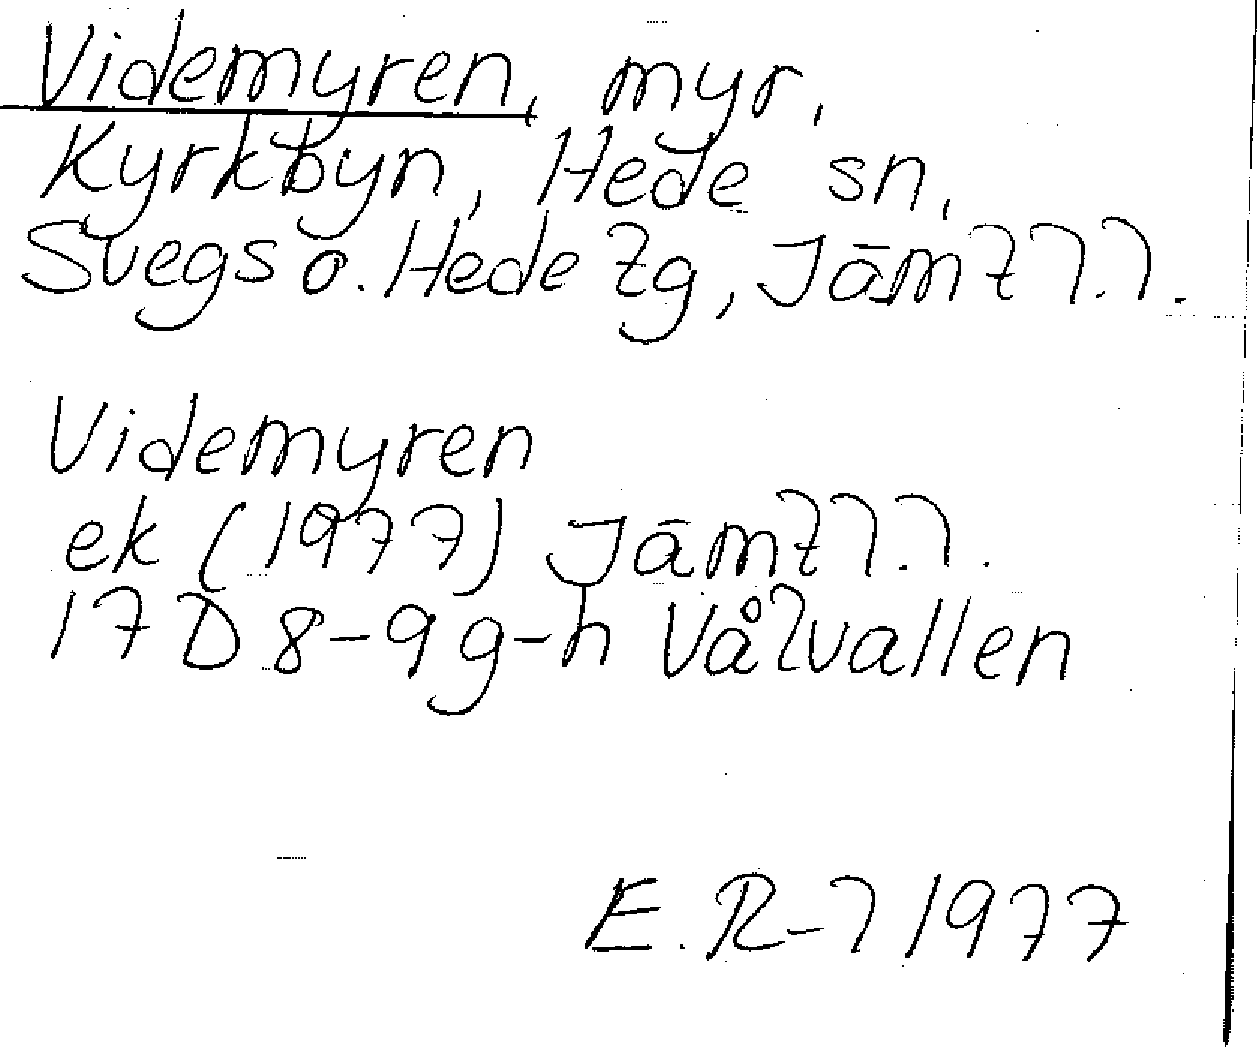 Videmyren, myr,
Kyrkbyn, Hede sn,
Svegs o. Hede tg, Jämtl.l.
Videmyren
ek (1977) Jämtl.l.
17 D 8-9 g-h Vålvallen
E. R-l 1977